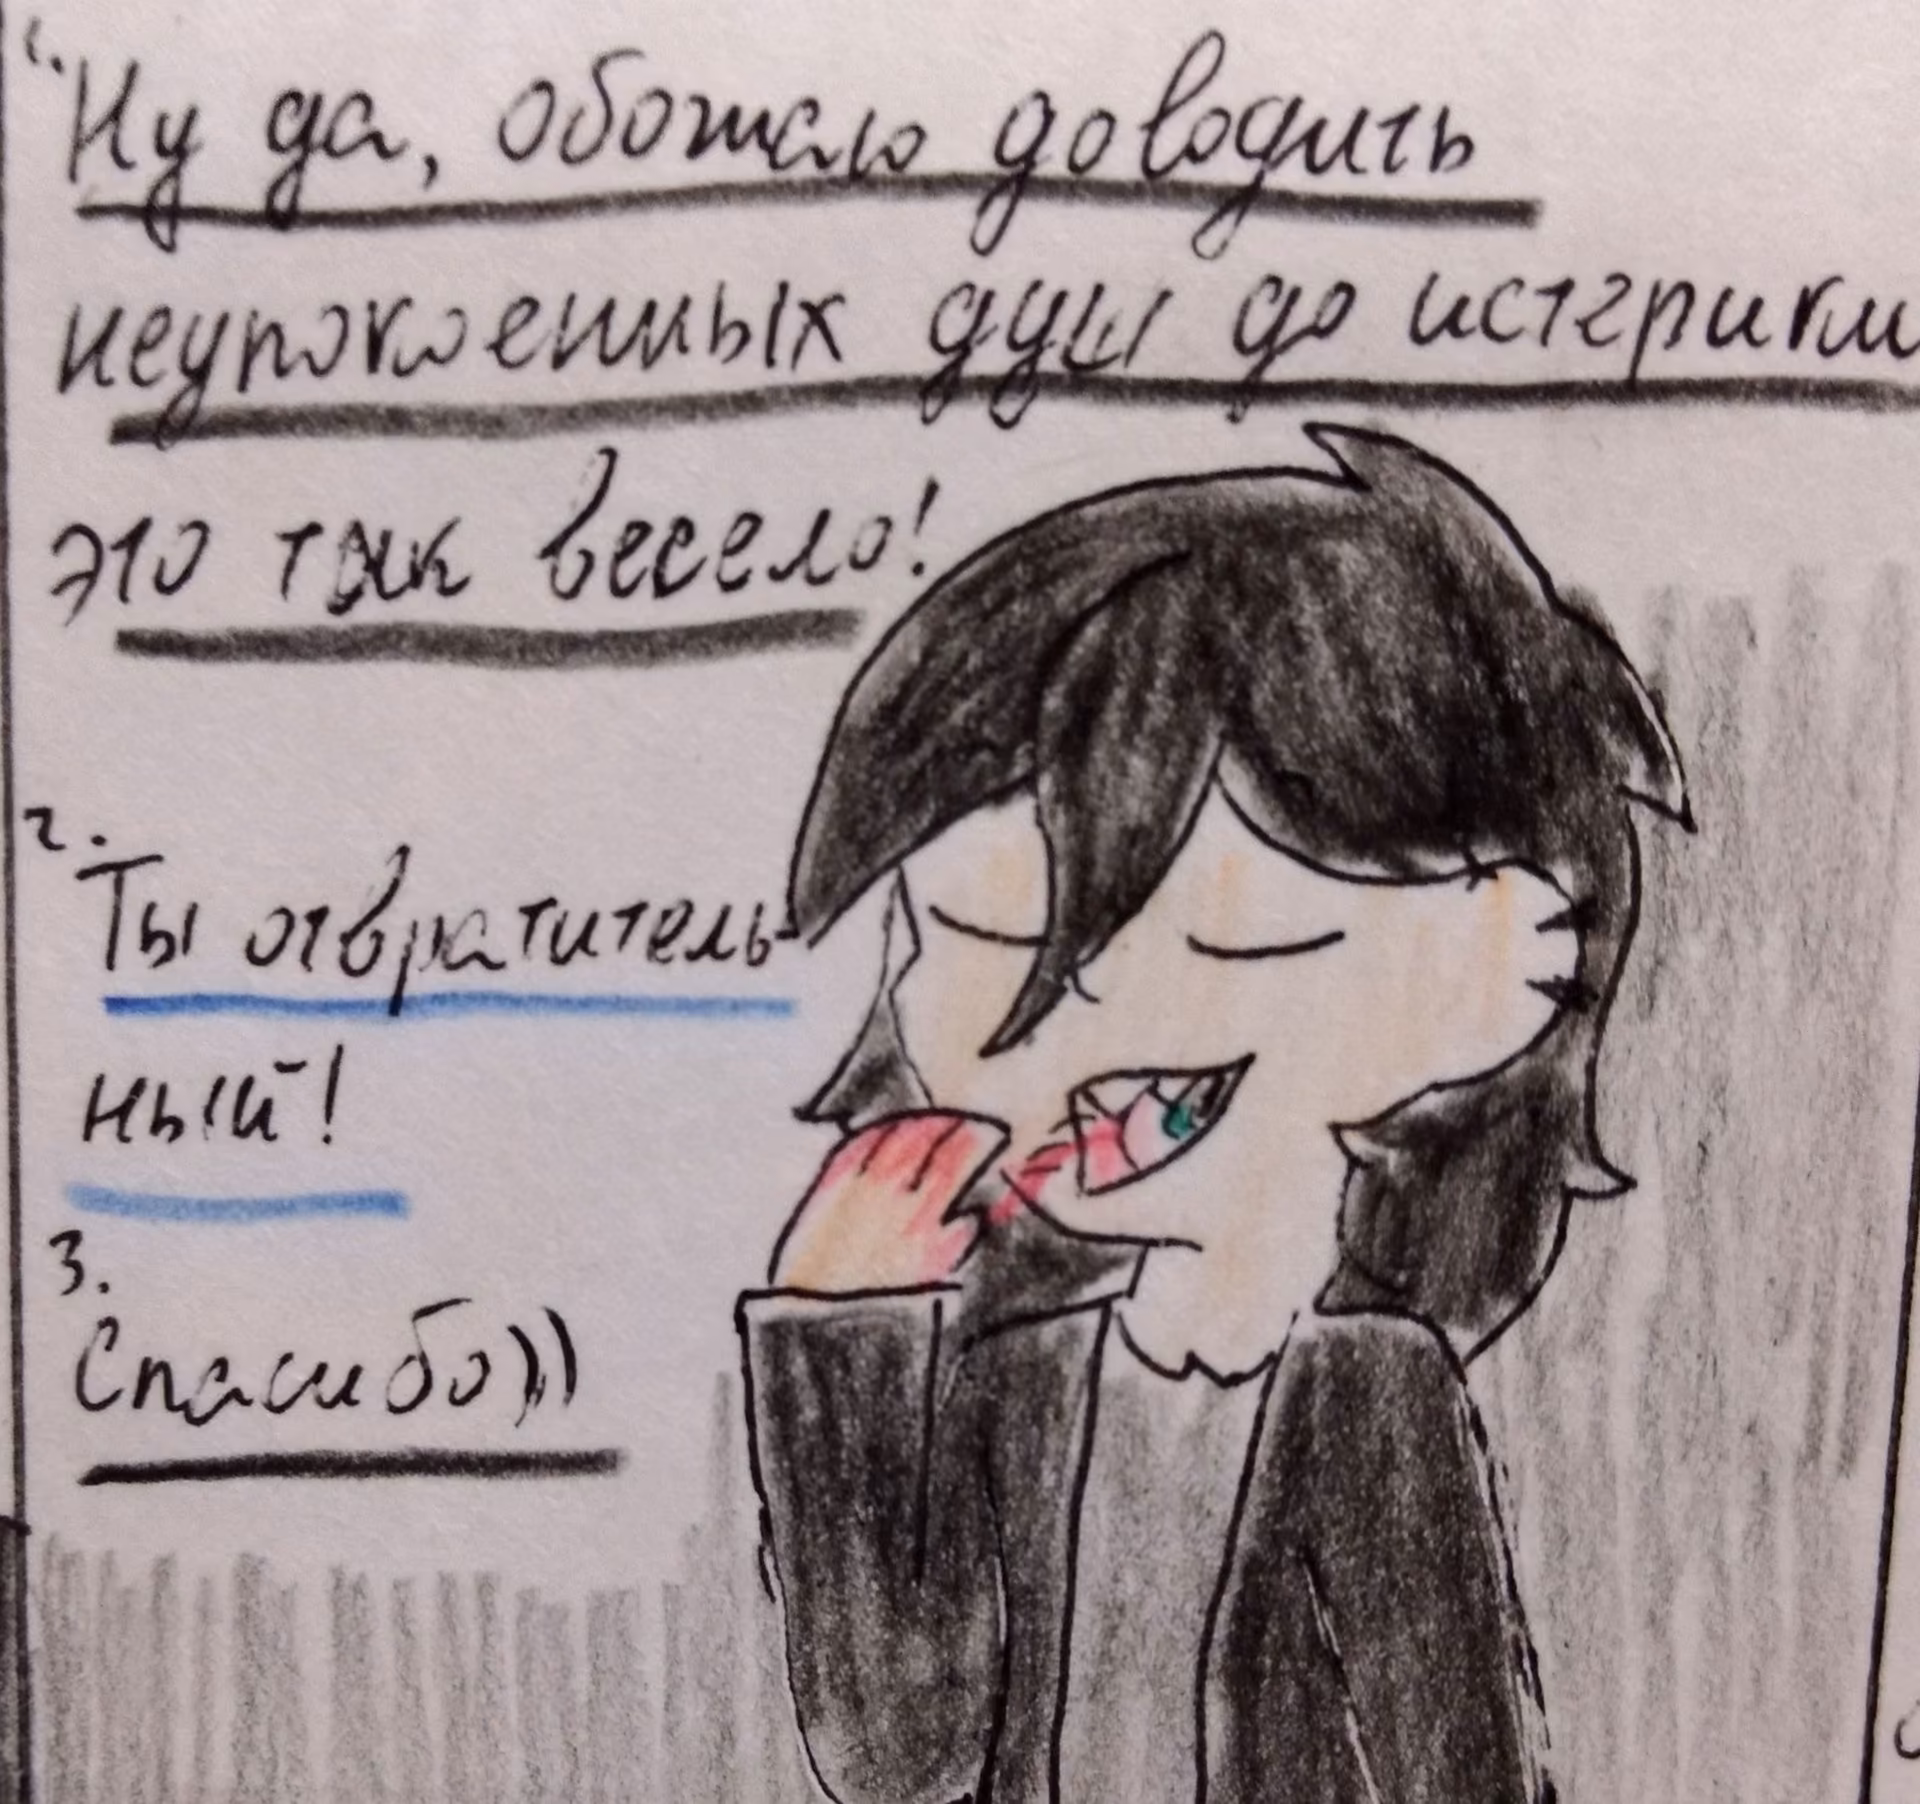 1.
Ну да, обожаю доводить
неупокоенных душ до истерики
это так весело!
2.
Ты отвратитель-
ный!
3.
Спасибо))